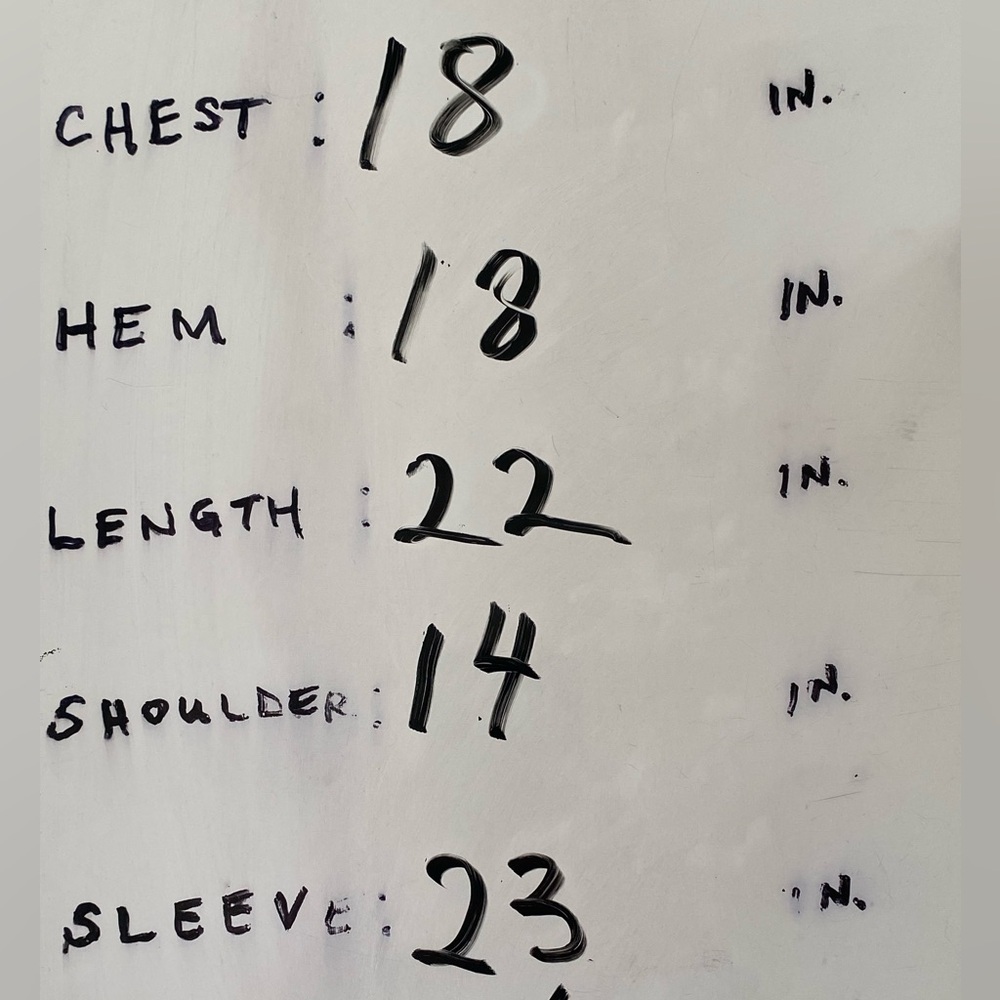 CHEST : 18 IN.
HEM : 18 IN.
LENGTH : 22 IN.
SHOULDER : 14 IN.
SLEEVE : 23 IN.